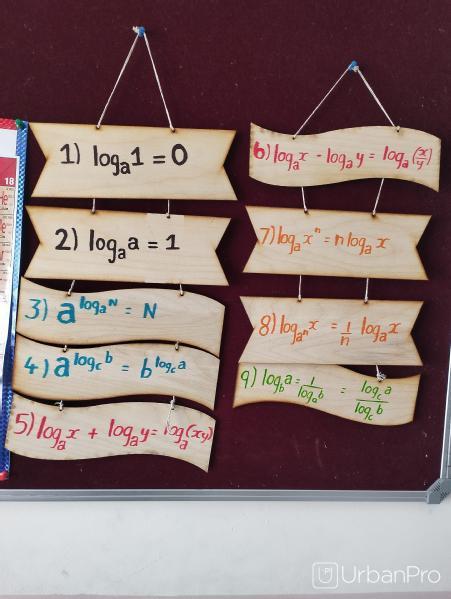 1) logₐ1 = 0
2) logₐa = 1
3) a^(logₐN) = N
4) a^(log_c b) = b^(log_c a)
5) logₐx + logₐy = logₐ(xy)
6) logₐx - logₐy = logₐ(x/y)
7) logₐxⁿ = n logₐx
8) log_(aⁿ) x = 1/n logₐx
9) log_b a = 1/(logₐb) = (log_c a)/(log_c b)
18
UrbanPro